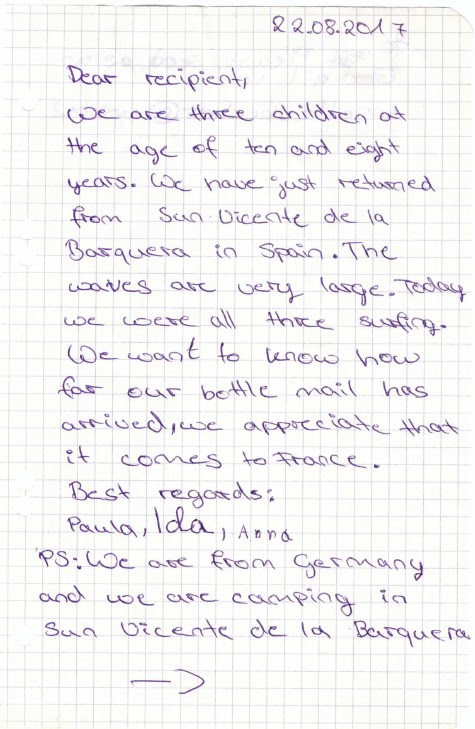 22.08.2017
Dear recipient,
We are three children at
the age of ten and eight
years. We have just returned
from Sun Vicente de la
Barquera in Spain. The
waves are very large. Today
we were all three surfing.
We want to know how
far our bottle mail has
arrived, we appreciate that
it comes to France.
Best regards:
Paula, Ida, Anna
PS: We are from Germany
and we are camping in
Sun Vicente de la Barquera